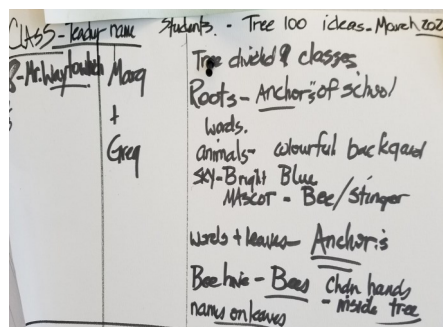 CLASS - Teacher name
Students. - Tree 100 ideas - March 202
8 - Mr.
Marq
+
Greg
Tree divided 9 classes
Roots - Anchors" of school
words.
animals - colourful backgaud
SKY - Bright Blue
MASCOT - Bee/Stinger
words + leaves - Anchor's
Beehive - Bees
Chdn hands
- inside tree
names on leaves